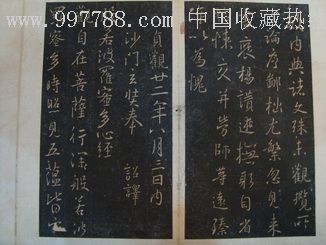 www.997788.com 中国收藏热线
内典諸文殊未觀攬所
論序鄙拙尤繁忽見来
褒揚讚述撫躬自省
悚交并勞師等遠臻
以為愧
貞觀廿二年八月三日内
沙門玄奘奉 詔譯
若波羅蜜多心經
自在菩薩行深般若波
蜜多時照見五蘊皆